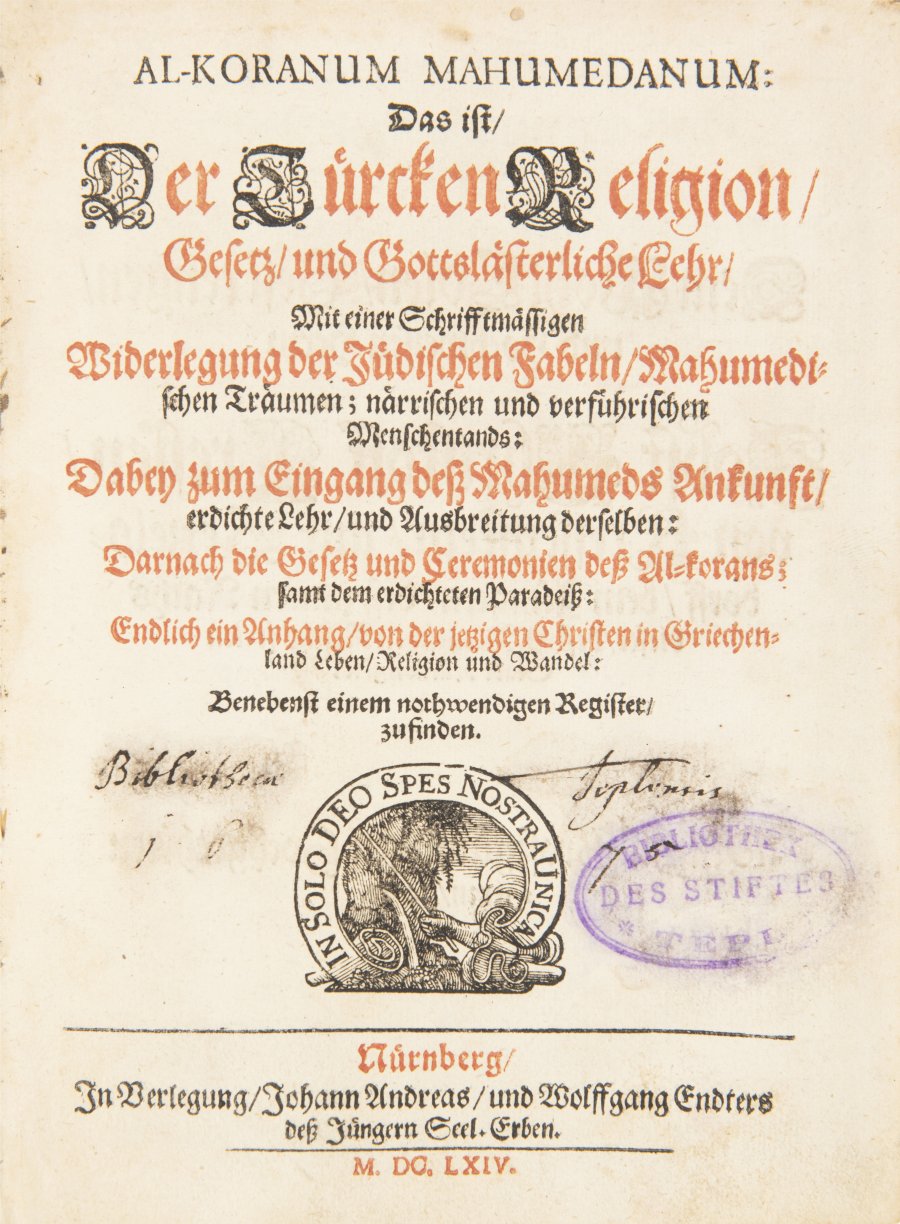 AL-KORANUM MAHUMEDANUM:
Das ist/
Der Türcken Religion/
Gesetz/ und Gottslästerliche Lehr/
Mit einer Schrifftmässigen
Widerlegung der Jüdischen Fabeln/ Mahumedi-
schen Träumen; närrischen und verführischen
Menschentands:
Dabey zum Eingang deß Mahumeds Ankunft/
erdichte Lehr/ und Ausbreitung derselben:
Darnach die Gesetz und Ceremonien deß Al-korans;
samt dem erdichteten Paradeiß:
Endlich ein Anhang/ von der jetzigen Christen in Griechen-
land Leben/ Religion und Wandel:
Benebenst einem nothwendigen Register/
zufinden.
Bibliothecae Teplensis
IN SOLO DEO SPES NOSTRA UNICA
BIBLIOTHEK
DES STIFTES
* TEPL
Nürnberg/
In Verlegung/ Johann Andreas/ und Wolffgang Endters
deß Jüngern Seel. Erben.
M. DC. LXIV.